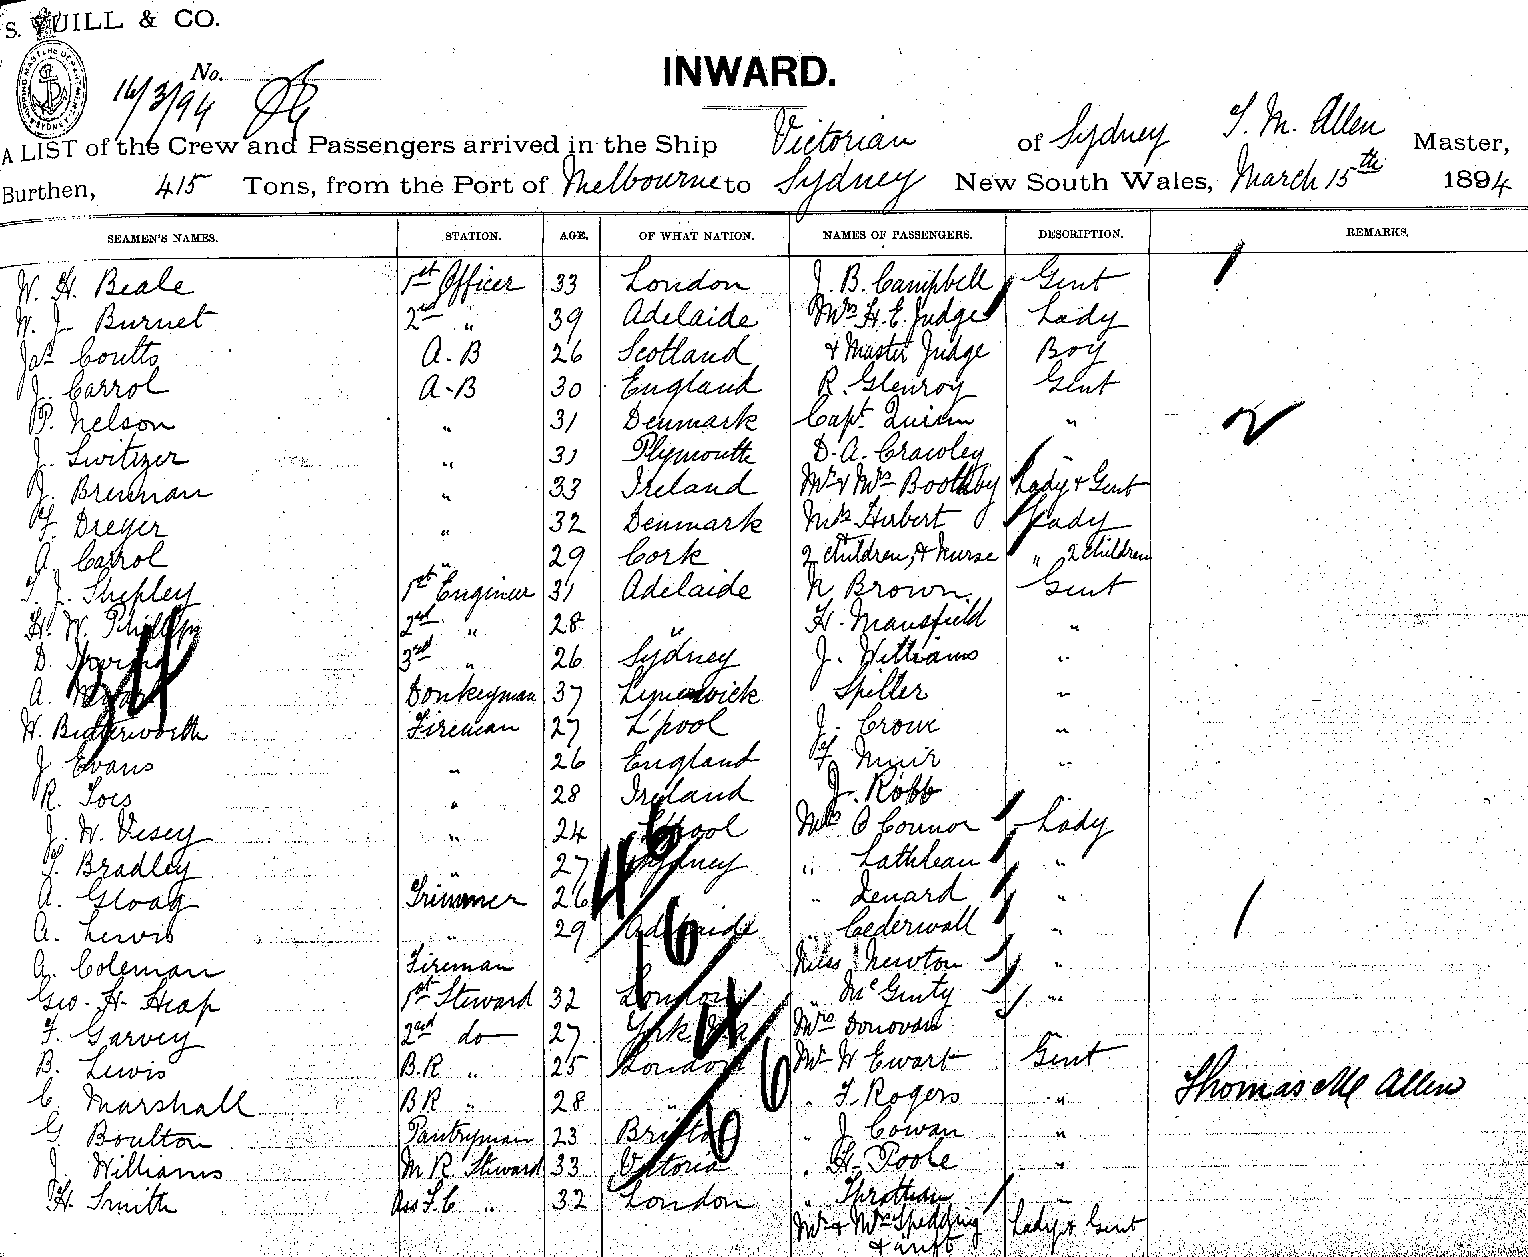 S. QUILL & CO.
No.
16/3/94
INWARD.
A LIST of the Crew and Passengers arrived in the Ship Victorian of Sydney T. M. Allen Master,
Burthen, 415 Tons, from the Port of Melbourne to Sydney New South Wales, March 15th 1894
SEAMEN'S NAMES. STATION. AGE. OF WHAT NATION. NAMES OF PASSENGERS. DESCRIPTION. REMARKS.
W. H. Beale 1st Officer 33 London J. B. Campbell Gent 1
W. J. Burnet 2nd " 39 Adelaide Mrs H. E. Judge Lady
Jas Coutts A.B 26 Scotland & Master Judge Boy
J. Carrol A-B 30 England R. Glenroy Gent
P. Nelson " 31 Denmark Capt. Quinn " 2
J. Switzer " 31 Plymouth D. A. Crawley "
J. Brennan " 33 Ireland Mr & Mrs Boothby Lady & Gent
F. Dreyer " 32 Denmark Mrs Herbert Lady
A. Carrol " 29 Cork 2 Children, & Nurse " 2 Children
T. J. Shepley 1st Engineer 31 Adelaide N Brown Gent
H. W. 2nd " 28 " H. Mansfield "
D. 3rd " 26 Sydney J. Williams "
A. Donkeyman 37 Limerwick Spiller "
W. Butterworth Fireman 27 L'pool J. Crowe "
J Evans " 26 England F. Muir "
R. " 28 Ireland J. Robb
J. W. Vesey " 24 L'pool Mrs O'Connor Lady
T. Bradley " 27 Sydney " Lathlean "
A. Gloag Trimmer 26 " Lenard "
A. Lewis " 29 Adelaide " Cederwall " 1
A. Coleman Fireman Miss Newton "
Geo. H. Heap 1st Steward 32 London " McGinty "
F. Garvey 2nd do 27 York Mrs Donovan
B. Lewis B.R " 25 London Mr W Ewart Gent
C. Marshall B R " 28 " " F. Rogers " Thomas M Allen
G. Boulton Pantryman 23 Bristol " J Cowan "
J. Williams M R Steward 33 Victoria " H. Poole "
H. Smith Ass S.C " 32 London "
Mr & Mrs Spedding Lady & Gent